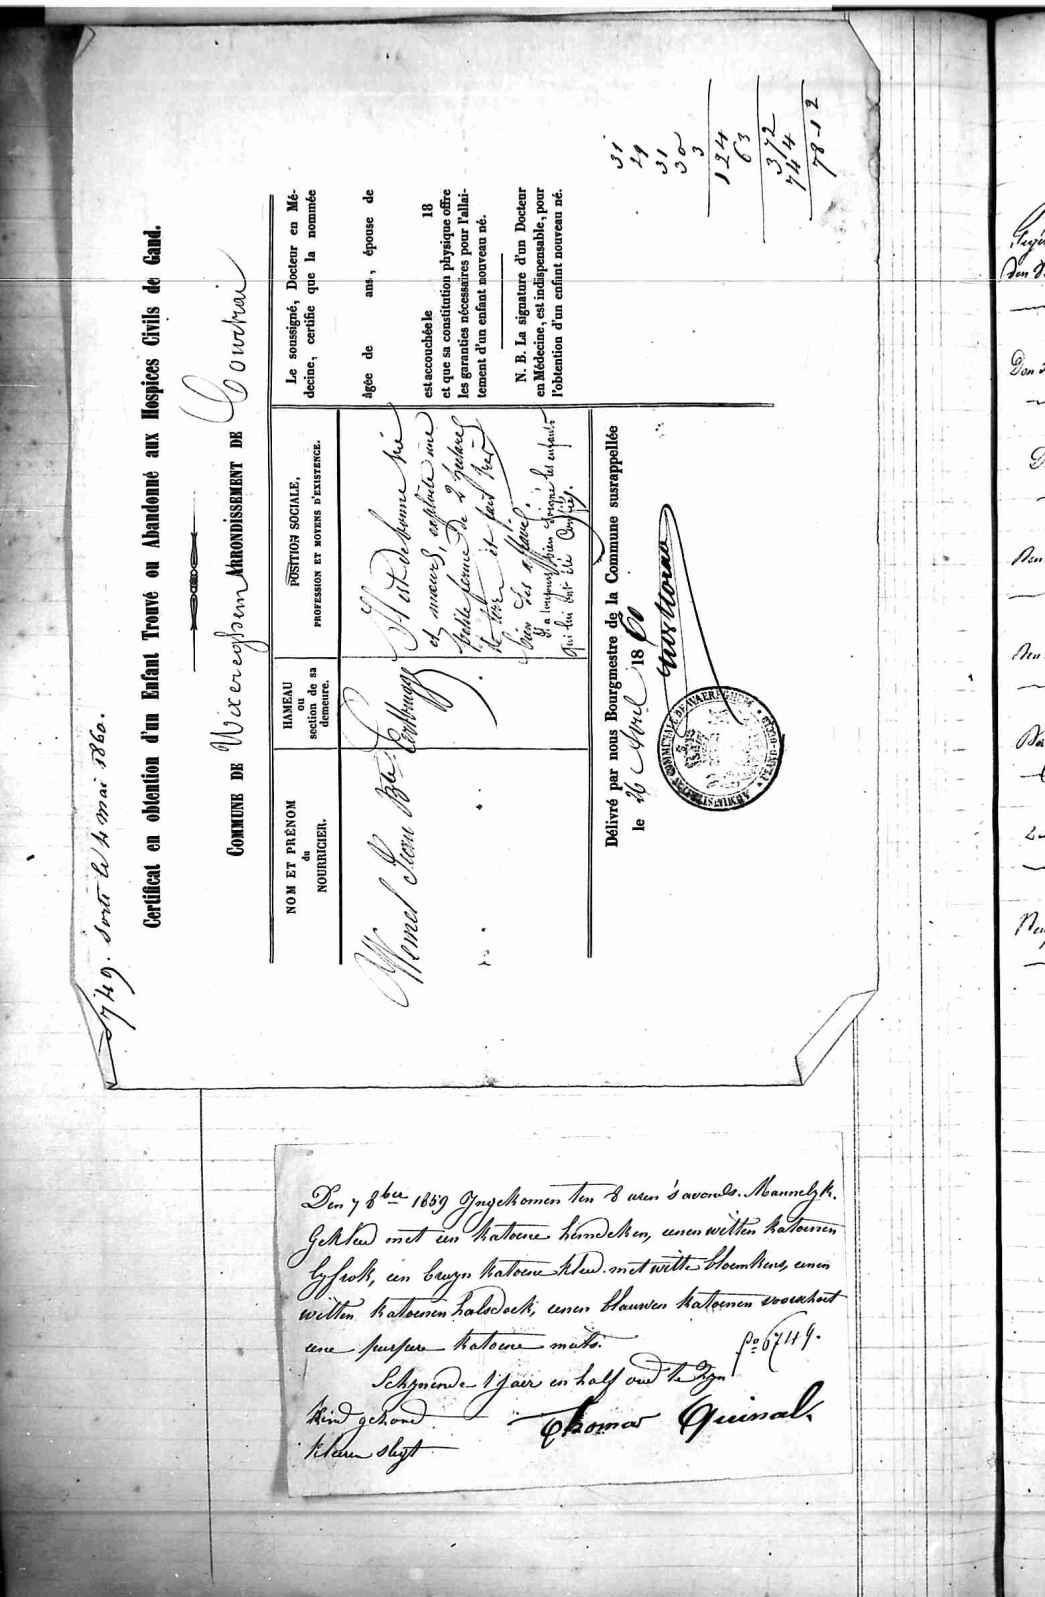 5749. Sorti le 4 mai 1860.
Certificat en obtention d'un Enfant Trouvé ou Abandonné aux Hospices Civils de Gand.
COMMUNE DE Waereghem ARRONDISSEMENT DE Courtrai
NOM ET PRÉNOM
du
NOURRICIER.
HAMEAU
ou
section de sa
demeure.
POSITION SOCIALE,
PROFESSION ET MOYENS D'EXISTENCE.
Le soussigné, Docteur en Mé-
decine, certifie que la nommée
âgée de ans, épouse de
est accouchée le 18
et que sa constitution physique offre
les garanties nécessaires pour l'allai-
tement d'un enfant nouveau né.
N. B. La signature d'un Docteur
en Médecine, est indispensable, pour
l'obtention d'un enfant nouveau né.
Jean Bte
Il est de bonne vie
et mœurs, exploite une
petite ferme de 2 hectares
de terre et fait très
bien ses affaires.
Il a toujours bien soigné les enfants
qui lui ont été confiés.
Délivré par nous Bourgmestre de la Commune susrappellée
le 26 Avril 1860
ADMINISTRATION COMMUNALE DE WAEREGHEM
31
29
31
30
3
124
63
372
744
78-12
Den 7 8ber 1859 Ingekomen ten 8 uren 's avonds. Mannelyk.
Gekleed met een katoene hemdeken, eenen witten katoenen
lyfrok, een bruyn katoene kleed met witte bloemkens, eenen
witten katoenen halsdoek, eenen blauwen katoenen voorschoot
eene purpere katoene muts.
fo 5749.
Schynende 1 jaer en half oud te zyn
kind gezond
kleeren slegt
Thomas Quinal